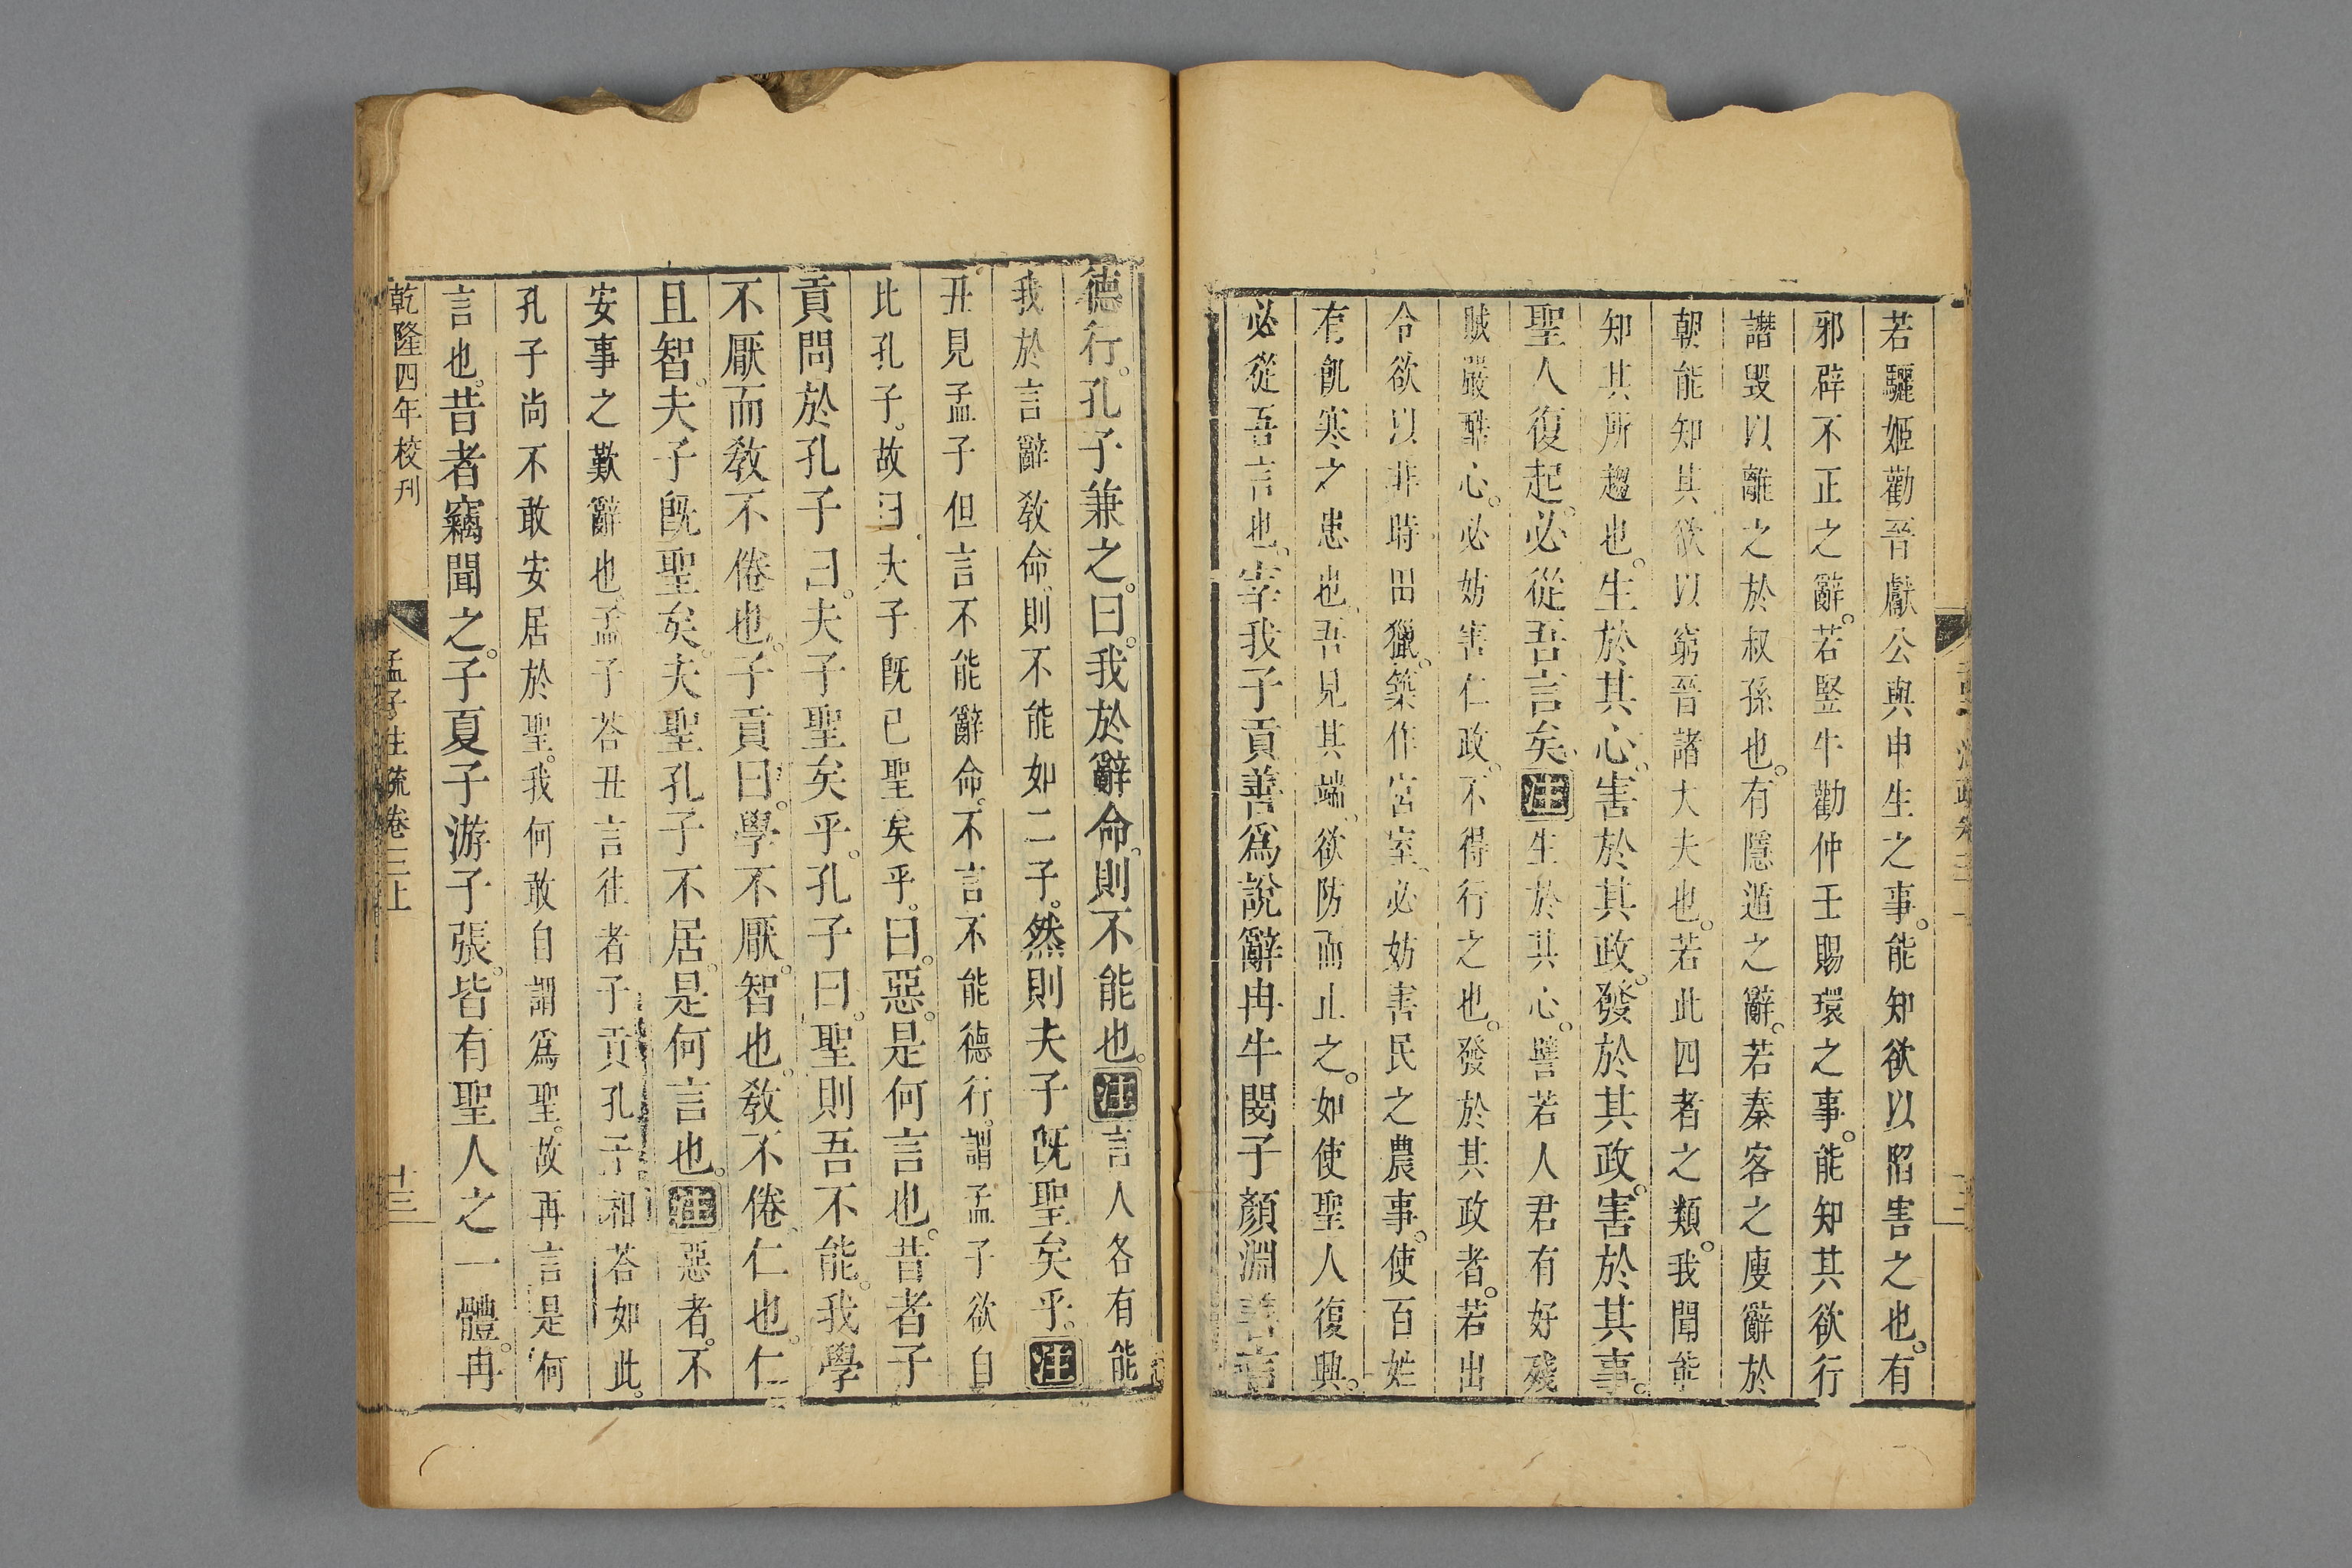 若驪姬勸晉獻公與申生之事。能知欲以陷害之也。有
邪辟不正之辭。若豎牛勸仲壬賜環之事。能知其欲行
譖毀以離之於叔孫也。有隱遁之辭。若秦客之廋辭於
朝能知其欲以窮晉諸大夫也。若此四者之類。我聞能
知其所趨也。生於其心。害於其政。發於其政。害於其事。
聖人復起。必從吾言矣。注生於其心。譬若人君有好殘
賊嚴酷心。必妨害仁政。不得行之也。發於其政者。若出
令欲以非時田獵。築作宮室、必妨害民之農事。使百姓
有飢寒之患也、吾見其端、欲防而止之。如使聖人復興。
必從吾言也、宰我子貢善爲說辭冉牛閔子顏淵善言
德行。孔子兼之。曰。我於辭命。則不能也。注言人各有能
我於言辭敎命、則不能如二子。然則夫子既聖矣乎。注
丑見孟子但言不能辭命。不言不能德行。謂孟子欲自
比孔子。故曰夫子旣已聖矣乎。曰。惡。是何言也。昔者子
貢問於孔子曰。夫子聖矣乎。孔子曰。聖則吾不能。我學
不厭而敎不倦也。子貢曰。學不厭。智也。敎不倦、仁也。仁
且智。夫子旣聖矣。夫聖孔子不居。是何言也。注惡者。不
安事之歎辭也。孟子荅丑言往者子貢孔子相荅如此。
孔子尚不敢安居於聖。我何敢自謂爲聖。故再言是何
言也。昔者竊聞之。子夏子游子張。皆有聖人之一體。冉
乾隆四年校刊
孟子注疏卷三上
十三